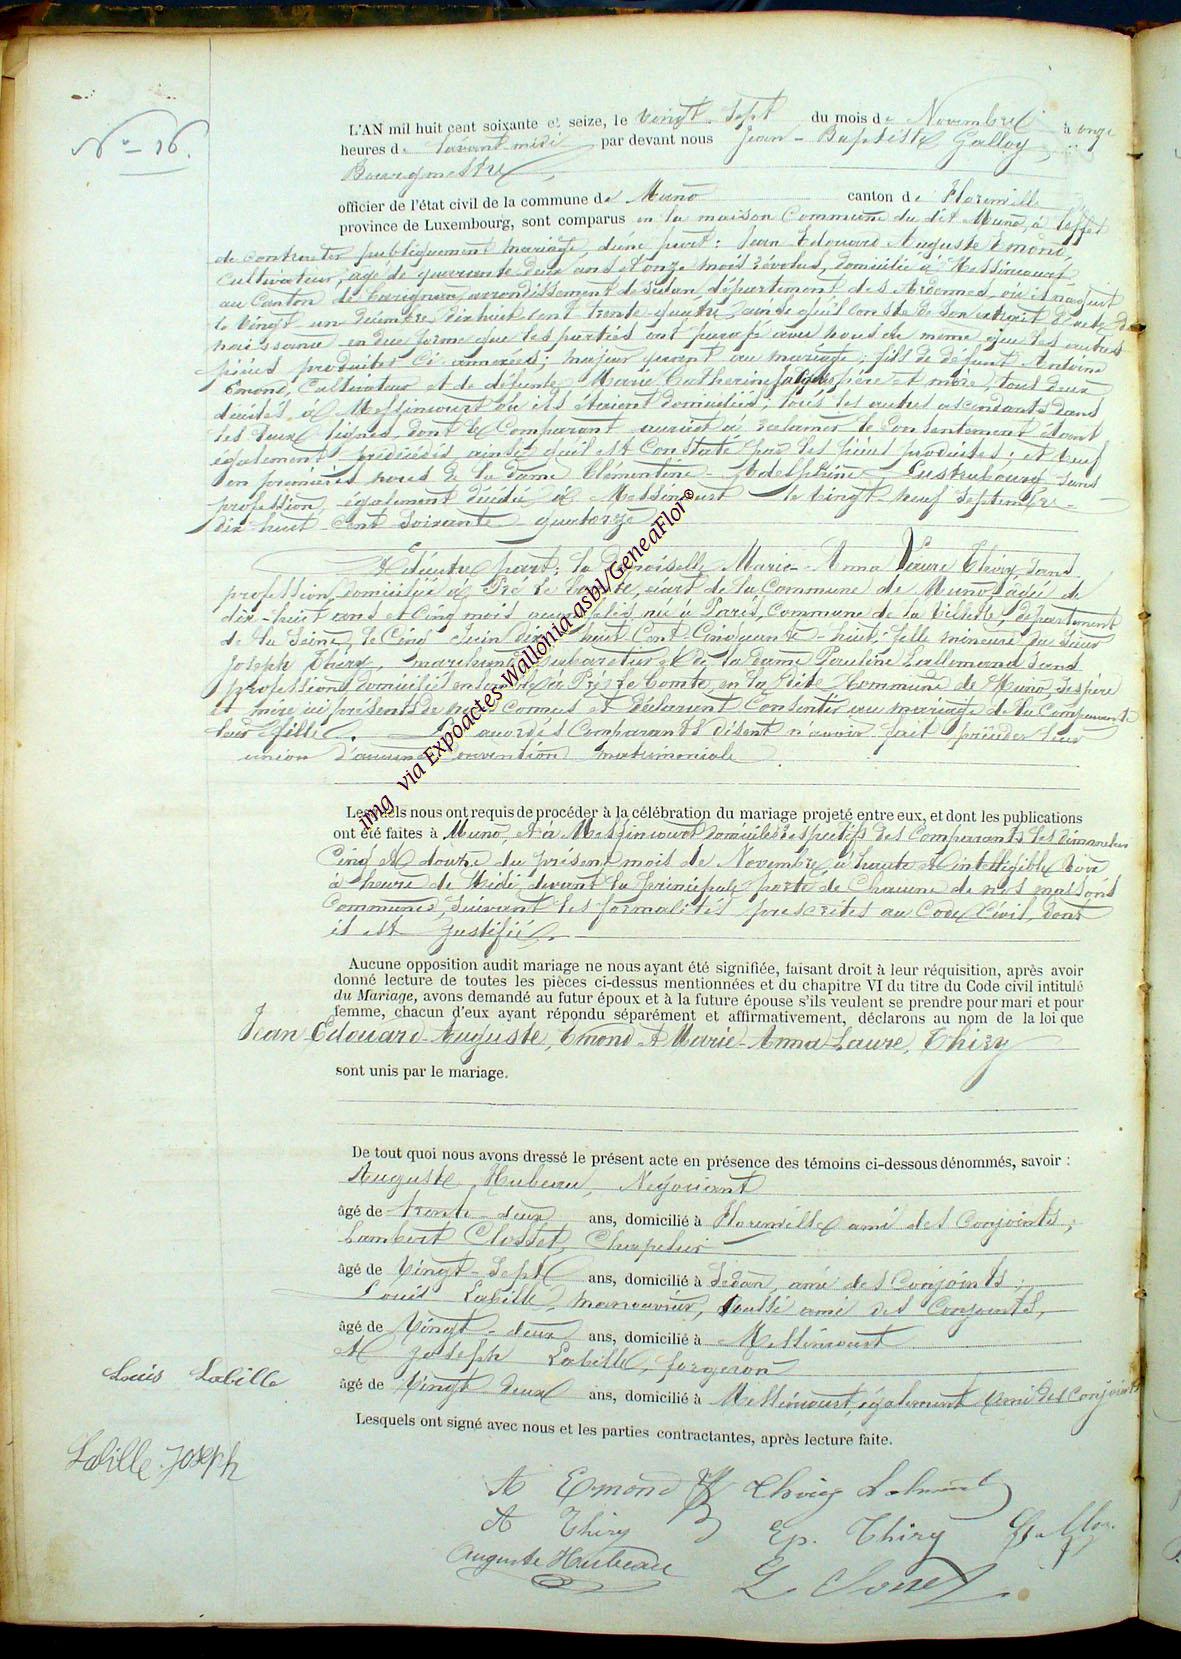 N° 16.
L'AN mil huit cent soixante et seize, le vingt-sept du mois de Novembre à onze
heures de l'avant-midi par devant nous Jean-Baptiste Galloy
Bourgmestre
officier de l'état civil de la commune de Muno canton de Florenville
province de Luxembourg, sont comparus en la maison Commune du dit Muno, à l'effet
de contracter publiquement mariage, d'une part: Jean Edouard Auguste Emond,
cultivateur, âgé de quarante deux ans et onze mois révolus, domicilié à Messincourt
au Canton de Carignan, arrondissement de Sedan département des Ardennes, où il naquit
le vingt-un décembre dix huit cent trente-quatre, ainsi qu'il conste de son extrait d'acte de
naissance en due forme que les parties ont parafé avec nous de même que les autres
pièces produites ci-annexées; majeur quant au mariage; fils de défunt Antoine
Emond, Cultivateur et de défunte Marie Catherine père et mère, tous deux
décédés à Messincourt où ils étaient domiciliés; tous les autres ascendants dans
les deux lignes, dont le Comparant aurait à réclamer le consentement étant
également prédécédés ainsi qu'il est Constaté par les pièces produites; et veuf
en premières noces de la dame Clémentine sans
profession, également décédée à Messincourt le vingt neuf septembre
dix-huit cent soixante-quatorze
Et d'autre part: la demoiselle Marie-Anna Laure Thiry sans
profession, domiciliée à Pré Le Comte, écart de la Commune de Muno, âgée de
dix-huit ans et cinq mois accomplis, née à Paris, Commune de la Villette, département
de la Seine, le Cinq Juin dix huit Cent Cinquante-huit; fille mineure du Sieur
Joseph Thiry, marchand cabaretier et de la dame Pauline Lallemand sans
profession, domiciliés ensemble à Pré-Le-Comte, en la dite Commune de Muno, ses père
et mère ici présents de nous connus et déclarant Consentir au mariage de la Comparante
leur fille. Les accordés Comparants disent n'avoir fait précéder leur
union d'aucune convention matrimoniale.
Lesquels nous ont requis de procéder à la célébration du mariage projeté entre eux, et dont les publications
ont été faites à Muno, et à Messincourt domiciles respectifs des Comparants les dimanches
Cinq et douze du présent mois de Novembre à haute et intelligible voix
à heure de Midi, devant la principale porte de Chacune de nos maisons
Communes, suivant les formalités prescrites au Code Civil, dont
il est Justifié.
Aucune opposition audit mariage ne nous ayant été signifiée, faisant droit à leur réquisition, après avoir
donné lecture de toutes les pièces ci-dessus mentionnées et du chapitre VI du titre du Code civil intitulé
du Mariage, avons demandé au futur époux et à la future épouse s'ils veulent se prendre pour mari et pour
femme, chacun d'eux ayant répondu séparément et affirmativement, déclarons au nom de la loi que
Jean Edouard-Auguste, Emond et Marie-Anna-Laure, Thiry
sont unis par le mariage.
De tout quoi nous avons dressé le présent acte en présence des témoins ci-dessous dénommés, savoir :
Auguste Hubeau, Négociant
âgé de trente-deux ans, domicilié à Florenville ami des Conjoints;
Lambert Closset, Chapelier
âgé de Vingt-Sept ans, domicilié à Sedan, ami des Conjoints;
Louis Labille, manouvrier, aussi ami des Conjoints,
âgé de Vingt-deux ans, domicilié à Messincourt
Et Joseph Labille, forgeron
âgé de Vingt-deux ans, domicilié à Messincourt, également ami des Conjoints
Lesquels ont signé avec nous et les parties contractantes, après lecture faite.
Louis Labille
Labille Joseph
A Emond Thiry
A Thiry Ep. Thiry
Auguste Hubeau
img via Expoactes-Wallonia-asbl/GeneaFlor®